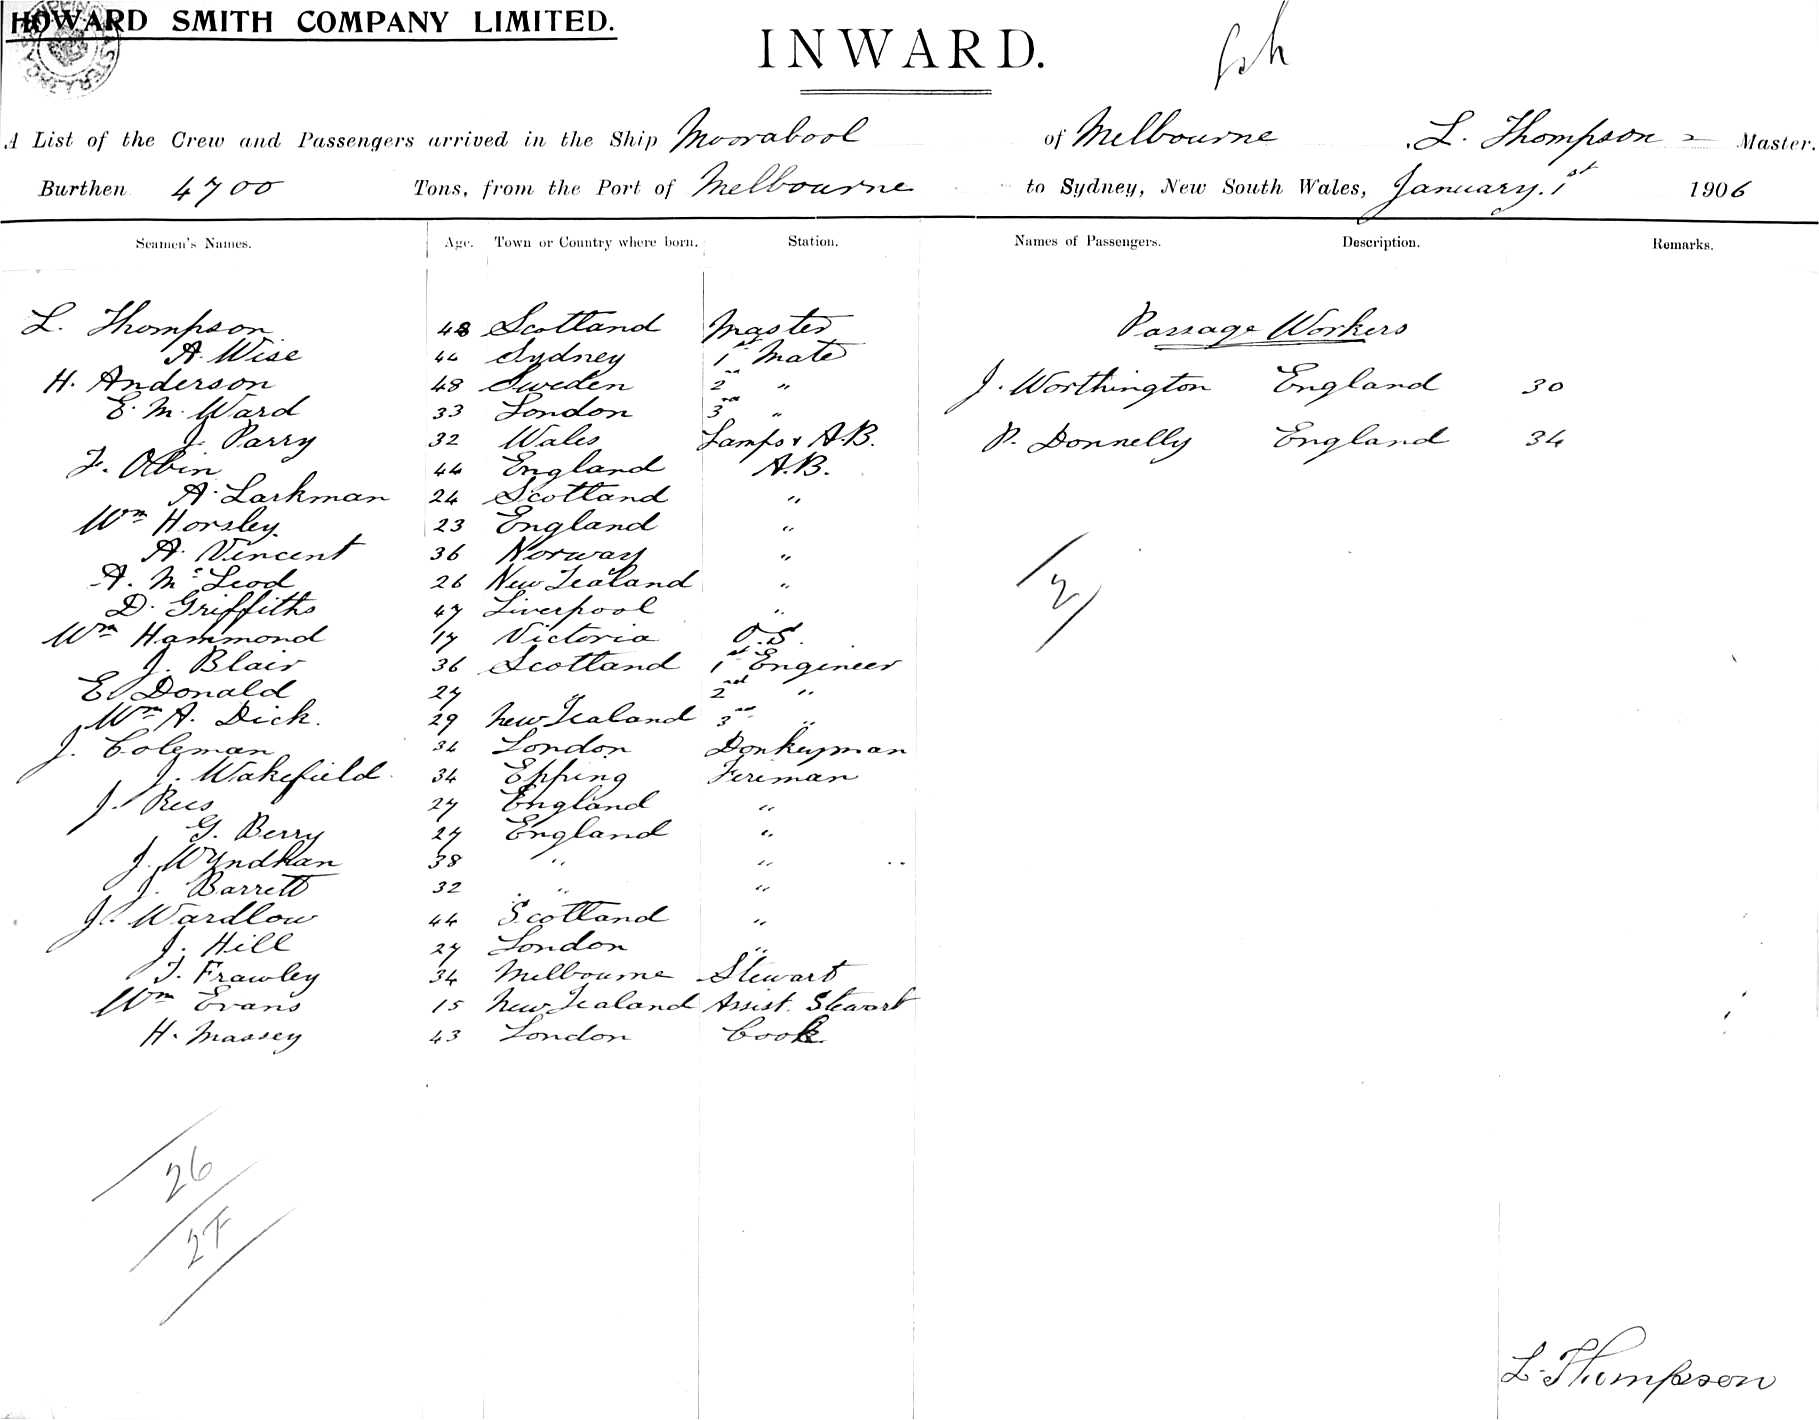 HOWARD SMITH COMPANY LIMITED.
INWARD.
A List of the Crew and Passengers arrived in the Ship Moorabool of Melbourne L. Thompson Master.
Burthen 4700 Tons, from the Port of Melbourne to Sydney, New South Wales, January. 1st 1906
Seamen's Names. Age. Town or Country where born. Station. Names of Passengers. Description. Remarks.
L. Thompson 48 Scotland Master
A. Wise 44 Sydney 1st Mate
H. Anderson 48 Sweden 2nd "
E. M. Ward 33 London 3rd "
J. Parry 32 Wales Lamps & A.B.
F. Olbin 44 England A.B.
A. Larkman 24 Scotland "
Wm Horsley. 23 England "
A. Vincent 36 Norway "
A. McLeod 26 New Zealand "
D. Griffiths 47 Liverpool "
Wm Hammond 17 Victoria O.S.
J. Blair 36 Scotland 1st Engineer
E. Donald 27 " 2nd "
Wm A. Dick. 29 New Zealand 3rd "
J. Coleman 34 London Donkeyman
J. Wakefield 34 Epping Fireman
J. Rees 27 England "
G. Berry 27 England "
J. Wyndhan 38 " "
J. Barrett 32 " "
J. Wardlow 44 Scotland "
J. Hill 27 London "
T. Frawley 34 Melbourne Stewart
Wm Evans 15 New Zealand Assist. Stewart
H. Massey 43 London Cook
Passage Workers
J. Worthington England 30
P. Donnelly England 34
2
26
27
L. Thompson